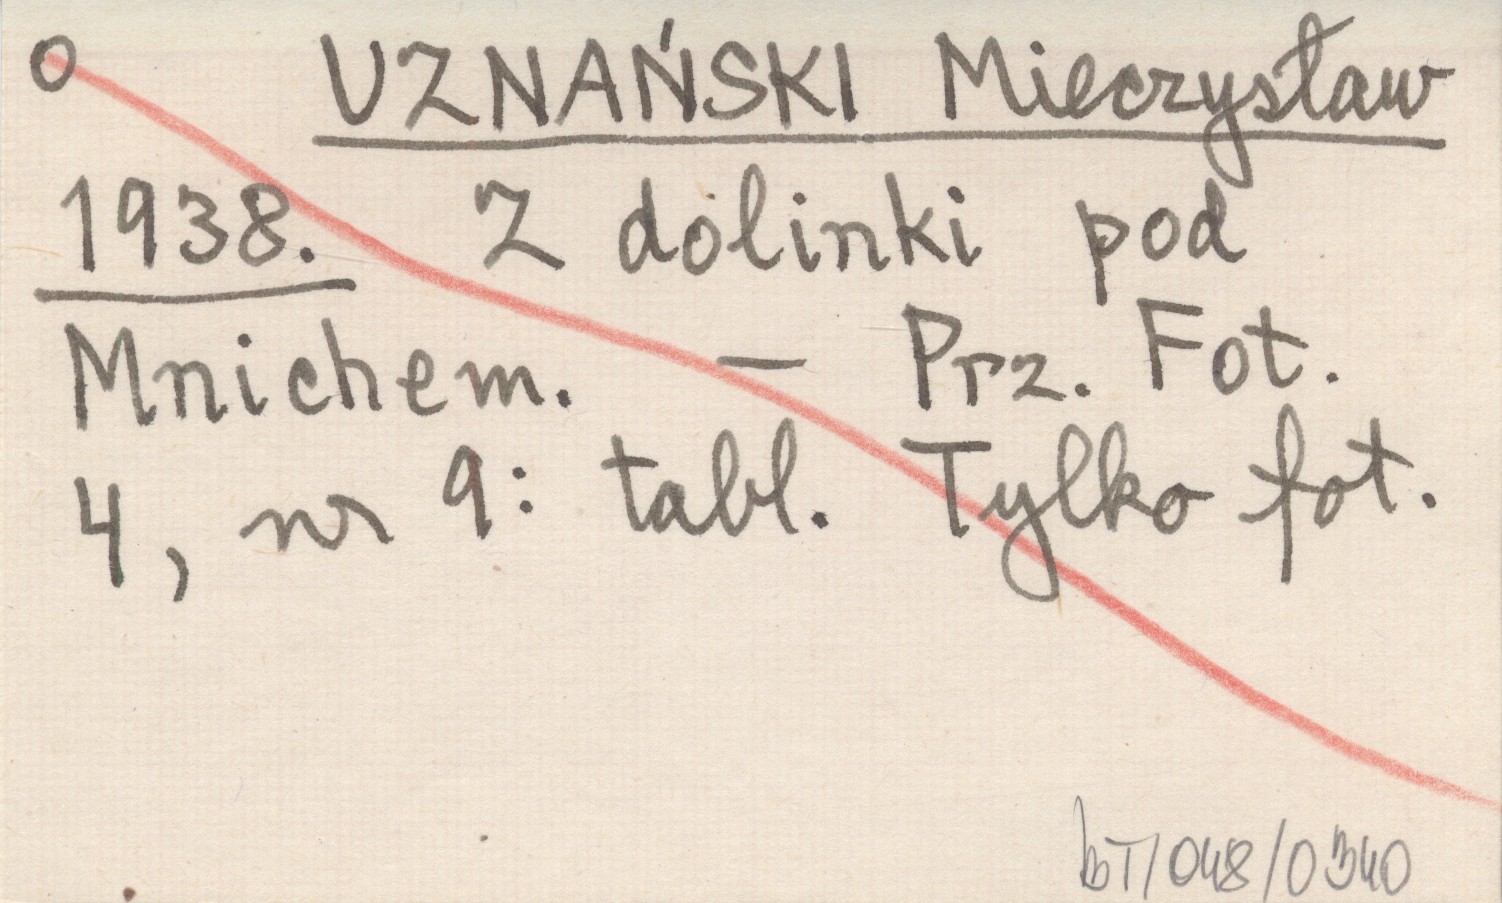 O UZNAŃSKI Mieczysław
1938. Z dolinki pod
Mnichem. — Prz. Fot.
4, nr 9: tabl. Tylko fot.
bT/048/0340